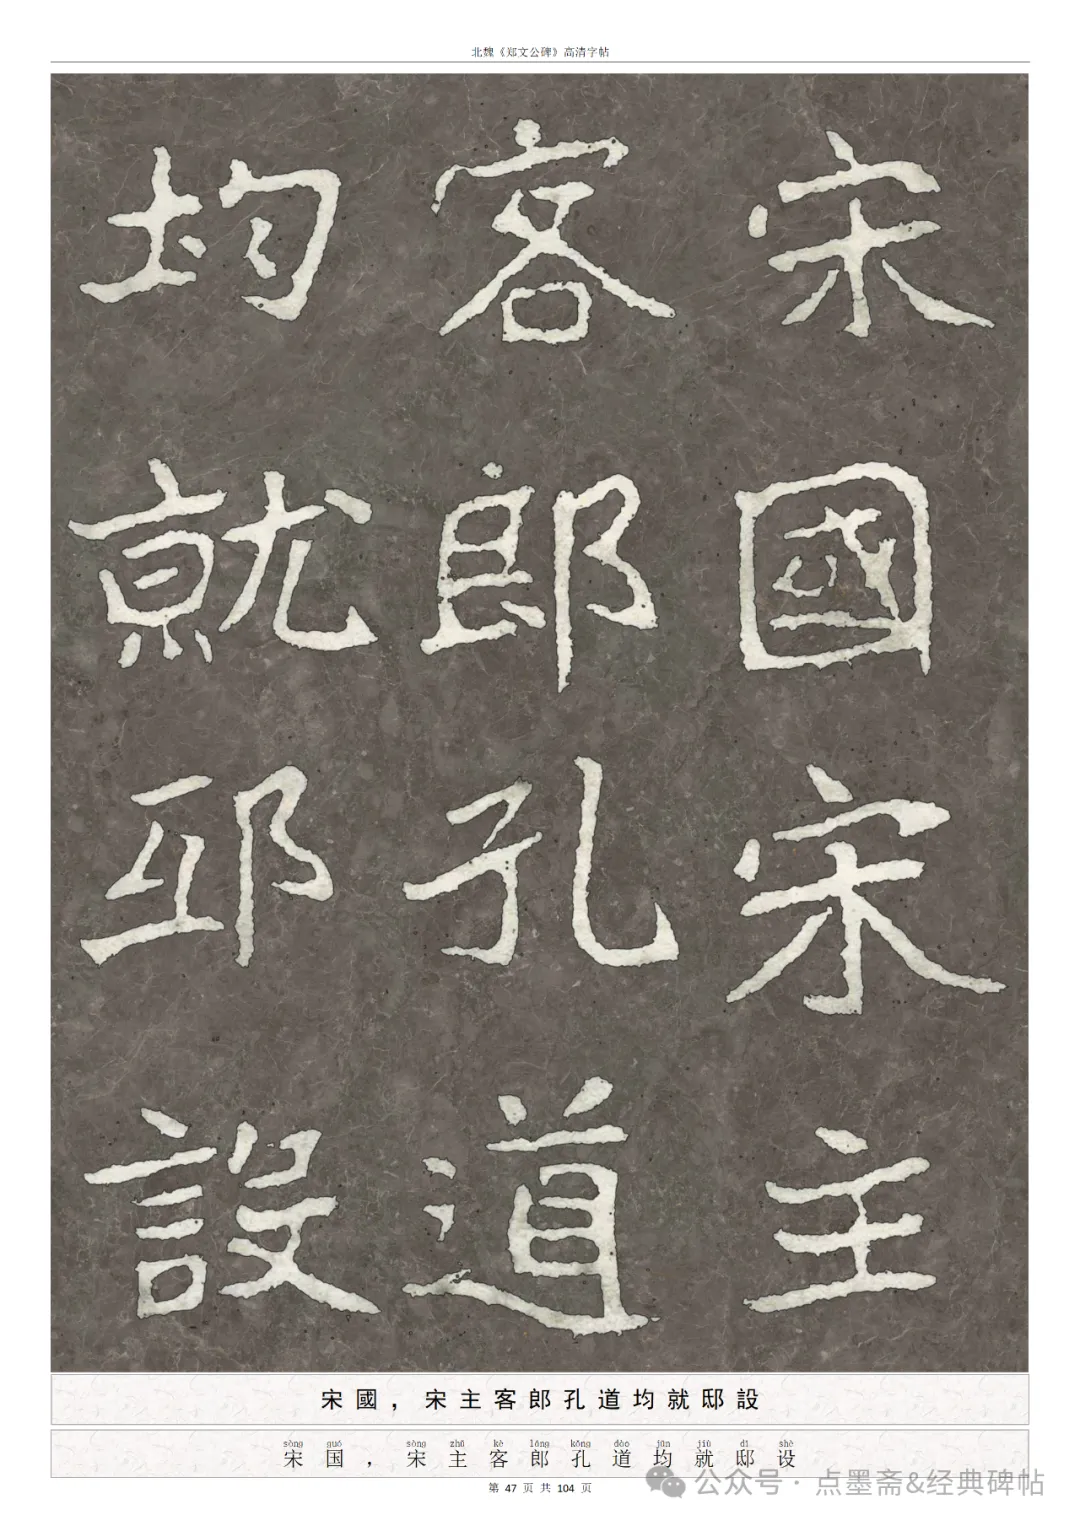 北魏《郑文公碑》高清字帖
宋國宋主
客郎孔道
均就邸設
宋國，宋主客郎孔道均就邸設
sòng guó sòng zhǔ kè láng kǒng dào jūn jiù dǐ shè
宋国，宋主客郎孔道均就邸设
第 47 页 共 104 页
公众号 · 点墨斋&经典碑帖